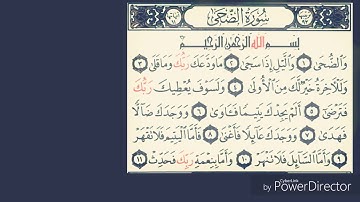 سُورَةُ الضُّحَىٰ
بِسْمِ اللَّهِ الرَّحْمَٰنِ الرَّحِيمِ
وَالضُّحَىٰ ١ وَاللَّيْلِ إِذَا سَجَىٰ ٢ مَا وَدَّعَكَ رَبُّكَ وَمَا قَلَىٰ ٣
وَلَلْآخِرَةُ خَيْرٌ لَّكَ مِنَ الْأُولَىٰ ٤ وَلَسَوْفَ يُعْطِيكَ رَبُّكَ
فَتَرْضَىٰ ٥ أَلَمْ يَجِدْكَ يَتِيمًا فَآوَىٰ ٦ وَوَجَدَكَ ضَالًّا
فَهَدَىٰ ٧ وَوَجَدَكَ عَائِلًا فَأَغْنَىٰ ٨ فَأَمَّا الْيَتِيمَ فَلَا تَقْهَرْ
٩ وَأَمَّا السَّائِلَ فَلَا تَنْهَرْ ١٠ وَأَمَّا بِنِعْمَةِ رَبِّكَ فَحَدِّثْ ١١
CyberLink
by PowerDirector